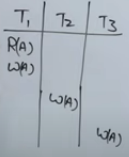 T₁ T₂ T₃
R(A)
W(A)
W(A)
W(A)